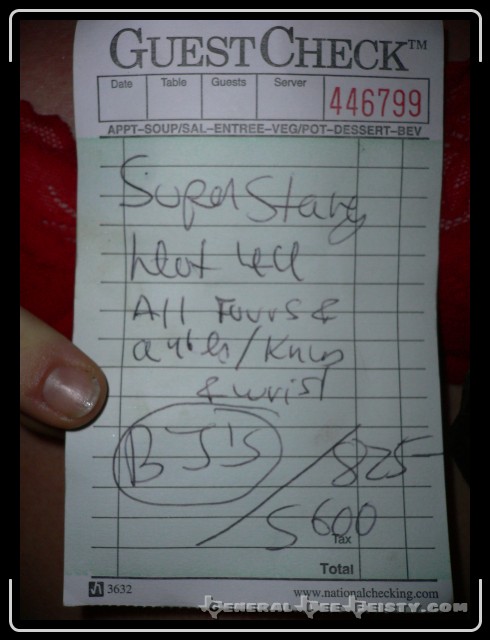 GUEST CHECK™
Date Table Guests Server
446799
APPT-SOUP/SAL-ENTREE-VEG/POT-DESSERT-BEV
Super
All Fours &
& wrist
BJ's / 825
5600
Tax
Total
3632 www.nationalchecking.com
GENERALLEEFEISTY.COM